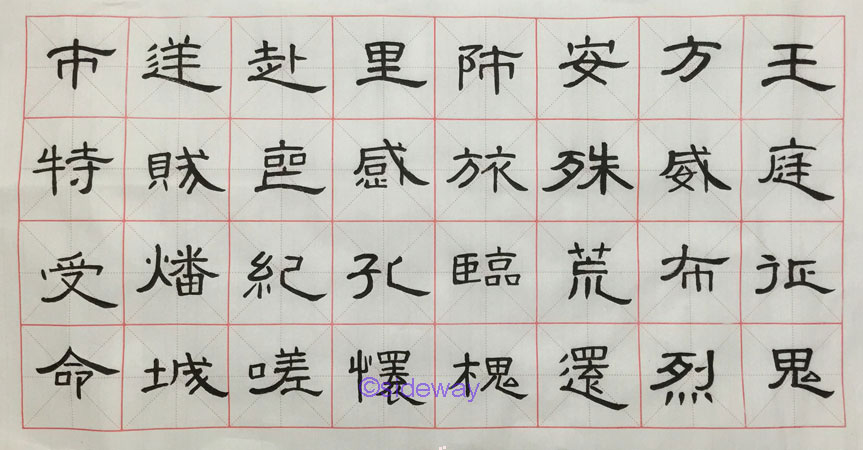 王庭征鬼
方威布烈
安殊荒還
師旅臨槐
里感孔懷
赴喪紀嗟
逆賊燔城
市特受命
©sideway